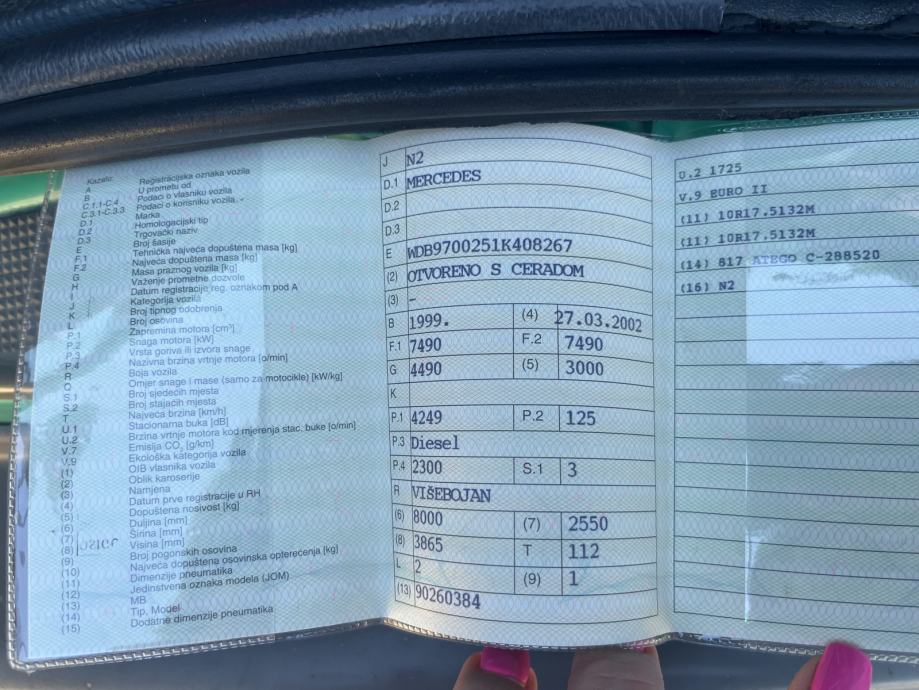 Kazalo:
A Registracijska oznaka vozila
B U prometu od
C.1.1-C.4 Podaci o vlasniku vozila
C.3.1-C.3.3 Podaci o korisniku vozila
D.1 Marka
D.2 Homologacijski tip
D.3 Trgovački naziv
E Broj šasije
F.1 Tehnička najveća dopuštena masa [kg]
F.2 Najveća dopuštena masa [kg]
G Masa praznog vozila [kg]
H Važenje prometne dozvole
I Datum registracije reg. oznakom pod A
J Kategorija vozila
K Broj tipnog odobrenja
L Broj osovina
P.1 Zapremina motora [cm³]
P.2 Snaga motora [kW]
P.3 Vrsta goriva ili izvora snage
P.4 Nazivna brzina vrtnje motora [o/min]
R Boja vozila
Q Omjer snage i mase (samo za motocikle) [kW/kg]
S.1 Broj sjedećih mjesta
S.2 Broj stajaćih mjesta
T Najveća brzina [km/h]
U.1 Stacionarna buka [dB]
U.2 Brzina vrtnje motora kod mjerenja stac. buke [o/min]
V.7 Emisija CO₂ [g/km]
V.9 Ekološka kategorija vozila
(1) OIB vlasnika vozila
(2) Oblik karoserije
(3) Namjena
(4) Datum prve registracije u RH
(5) Dopuštena nosivost [kg]
(6) Duljina [mm]
(7) Širina [mm]
(8) Visina [mm]
(9) Broj pogonskih osovina
(10) Najveća dopuštena osovinska opterećenja [kg]
(11) Dimenzije pneumatika
(12) Jedinstvena oznaka modela (JOM)
(13) MB
(14) Tip, Model
(15) Dodatne dimenzije pneumatika
J N2
D.1 MERCEDES
D.2
D.3
E WDB9700251K408267
(2) OTVORENO S CERADOM
(3) –
B 1999. (4) 27.03.2002
F.1 7490 F.2 7490
G 4490 (5) 3000
K
P.1 4249 P.2 125
P.3 Diesel
P.4 2300 S.1 3
R VIŠEBOJAN
(6) 8000 (7) 2550
(8) 3865 T 112
L 2 (9) 1
(13) 90260384
U.2 1725
V.9 EURO II
(11) 10R17.5132M
(11) 10R17.5132M
(14) 817 ATEGO C-288520
(16) N2